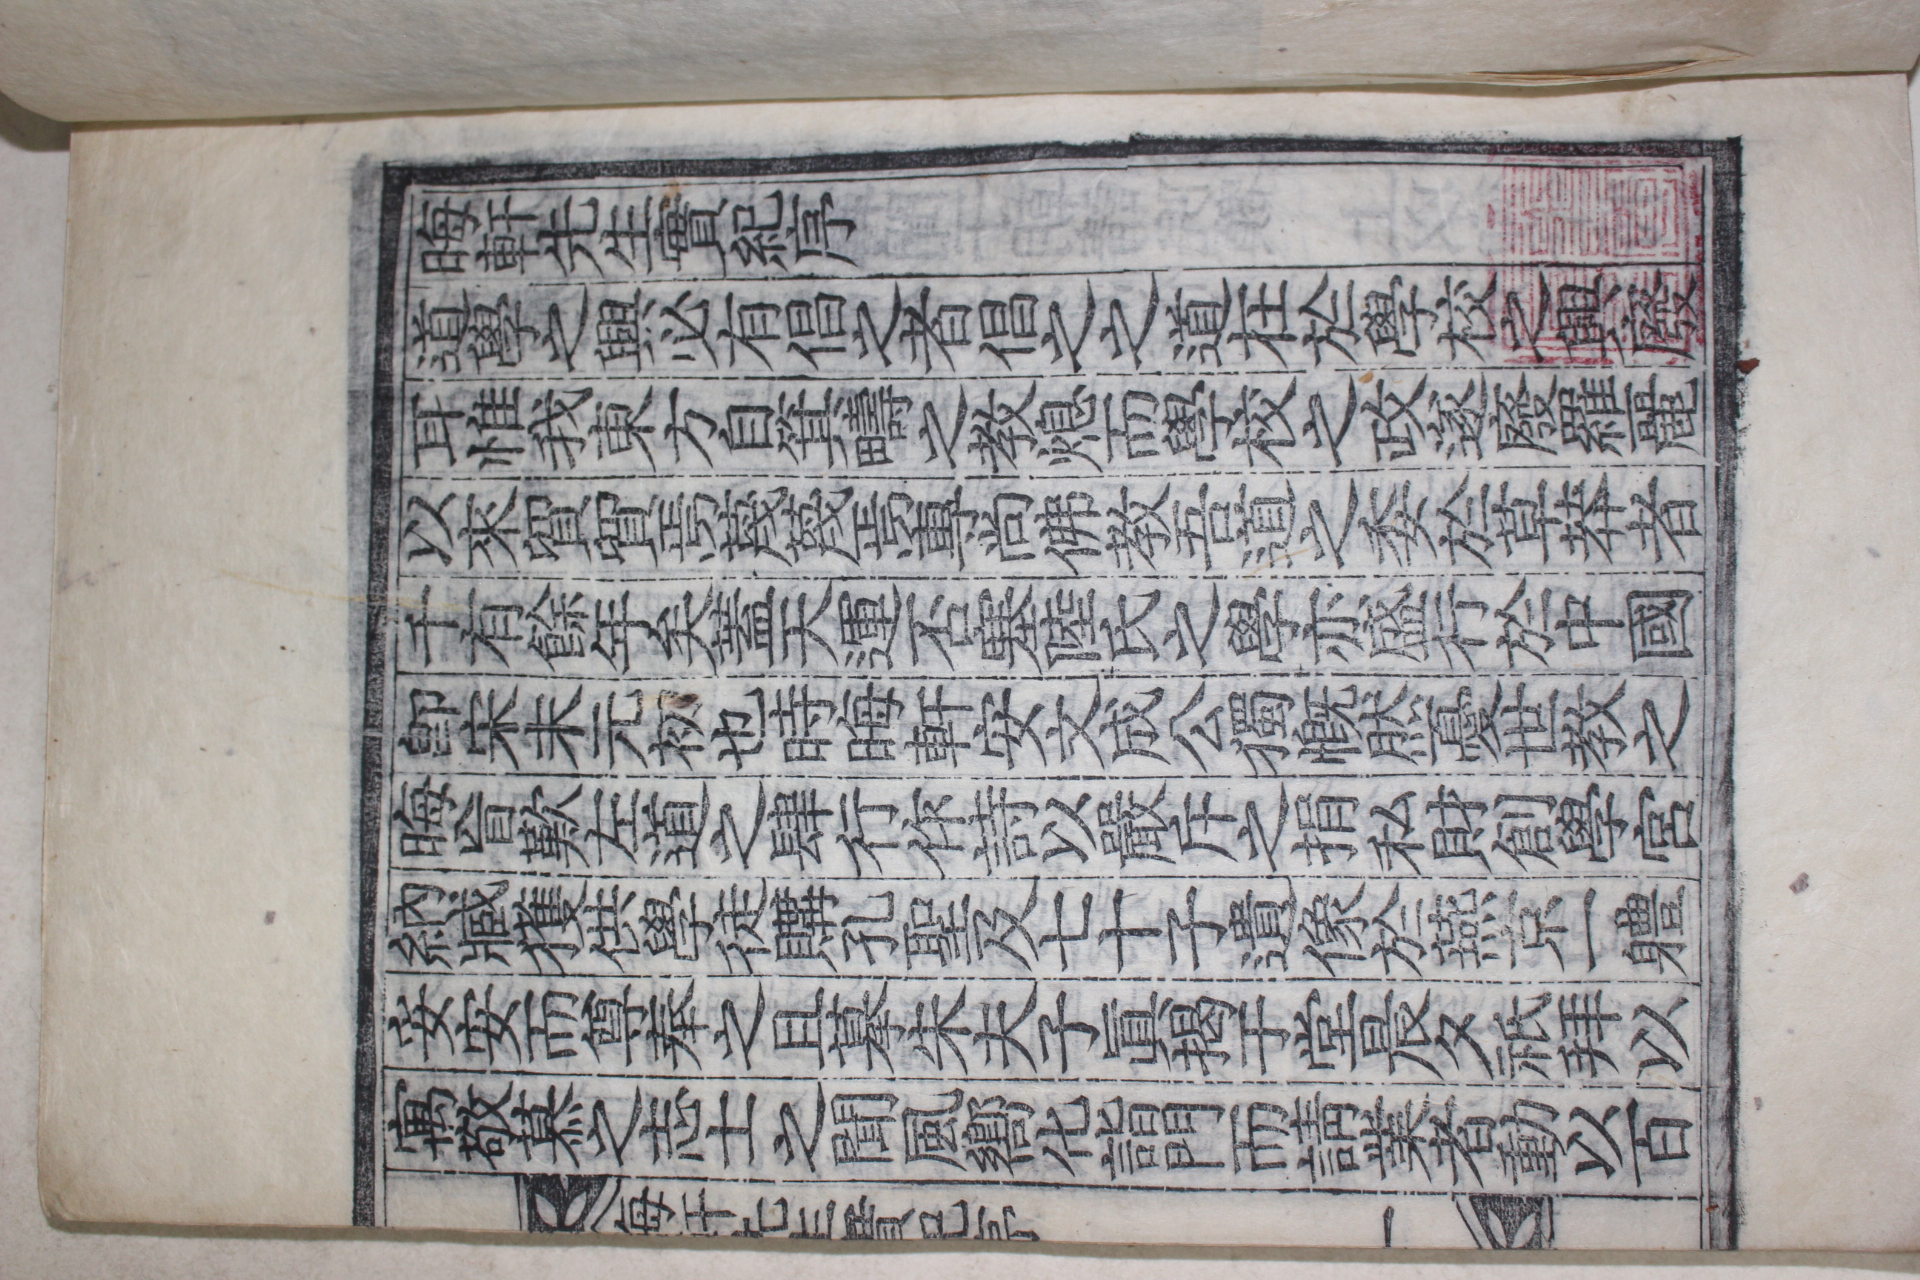 晦軒先生實紀序
道學之興必有倡之者倡之之道在於學校之興廢
耳惟我東方自箕疇之教熄而學校之政遂廢羅麗
以來貿貿焉蔑蔑焉專尚佛教吾道之委於草莽者
千有餘年矣蓋天運否塞陸氏之學亦盛行於中國
卽宋末元初也時晦軒安文成公獨慨然憂世教之
晦盲歎左道之肆行作詩以嚴斥之捐私財創學宮
納臧獲供學徒購孔聖及七十子遺像於燕京一軆
妥安而尊奉之且摹朱夫子眞揭于堂晨夕祇拜以
寓敬慕之志士之聞風嚮化詣門而請業者動以百
晦軒先生實紀序
一